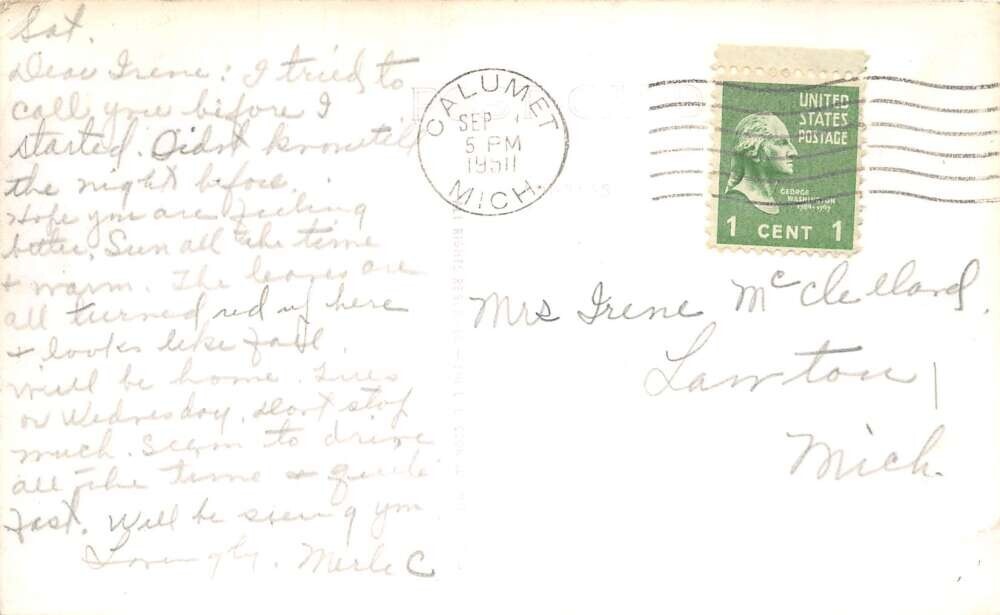 Sat.
Dear Irene: I tried to
call you before I
started. Didnt know till
the night before.
Hope you are feeling
better. Sun all the time
+ warm. The leaves are
all turned red up here
+ looks like fall.
Will be home Tues
or Wednesday. Dont stop
much. Seem to drive
all the time + quite
fast. Will be seeing you
Lovingly. Merle C
CALUMET
SEP
5 PM
1951
MICH.
UNITED
STATES
POSTAGE
GEORGE
WASHINGTON
1789-1797
1 CENT 1
Mrs Irene McClelland.
Lawton
Mich.